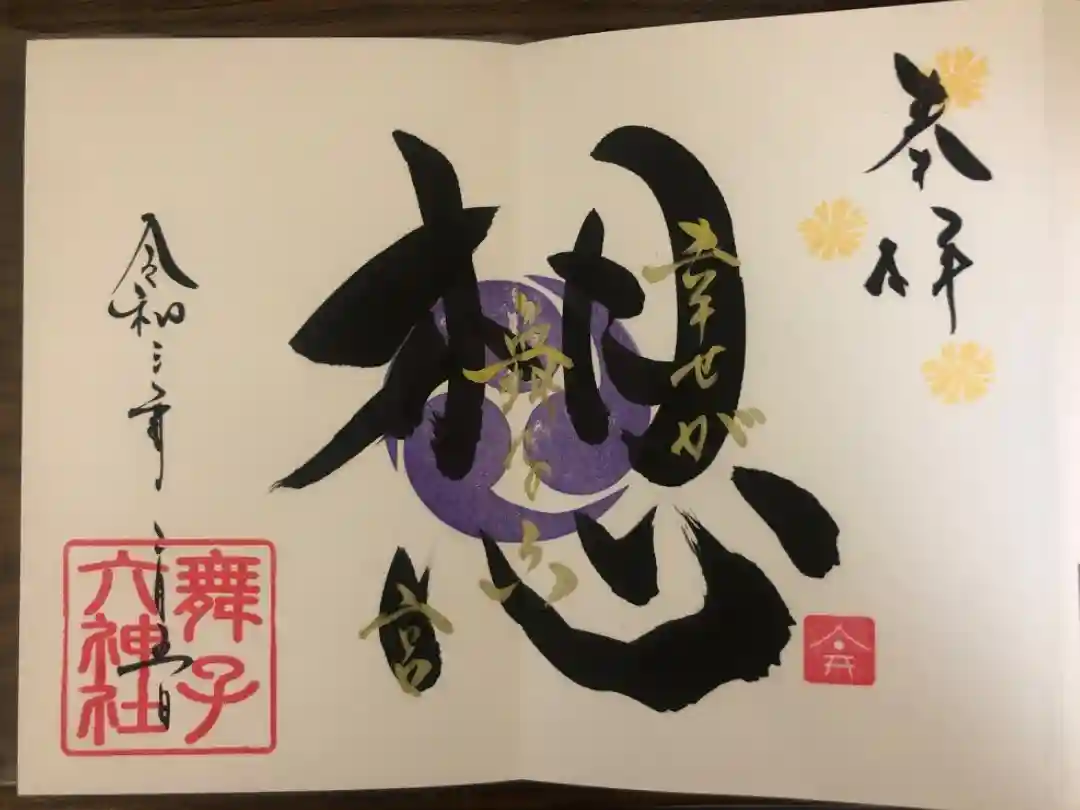 奉拝
想
幸せが
舞子六
宮
令和三年二月五日
舞子
六神社